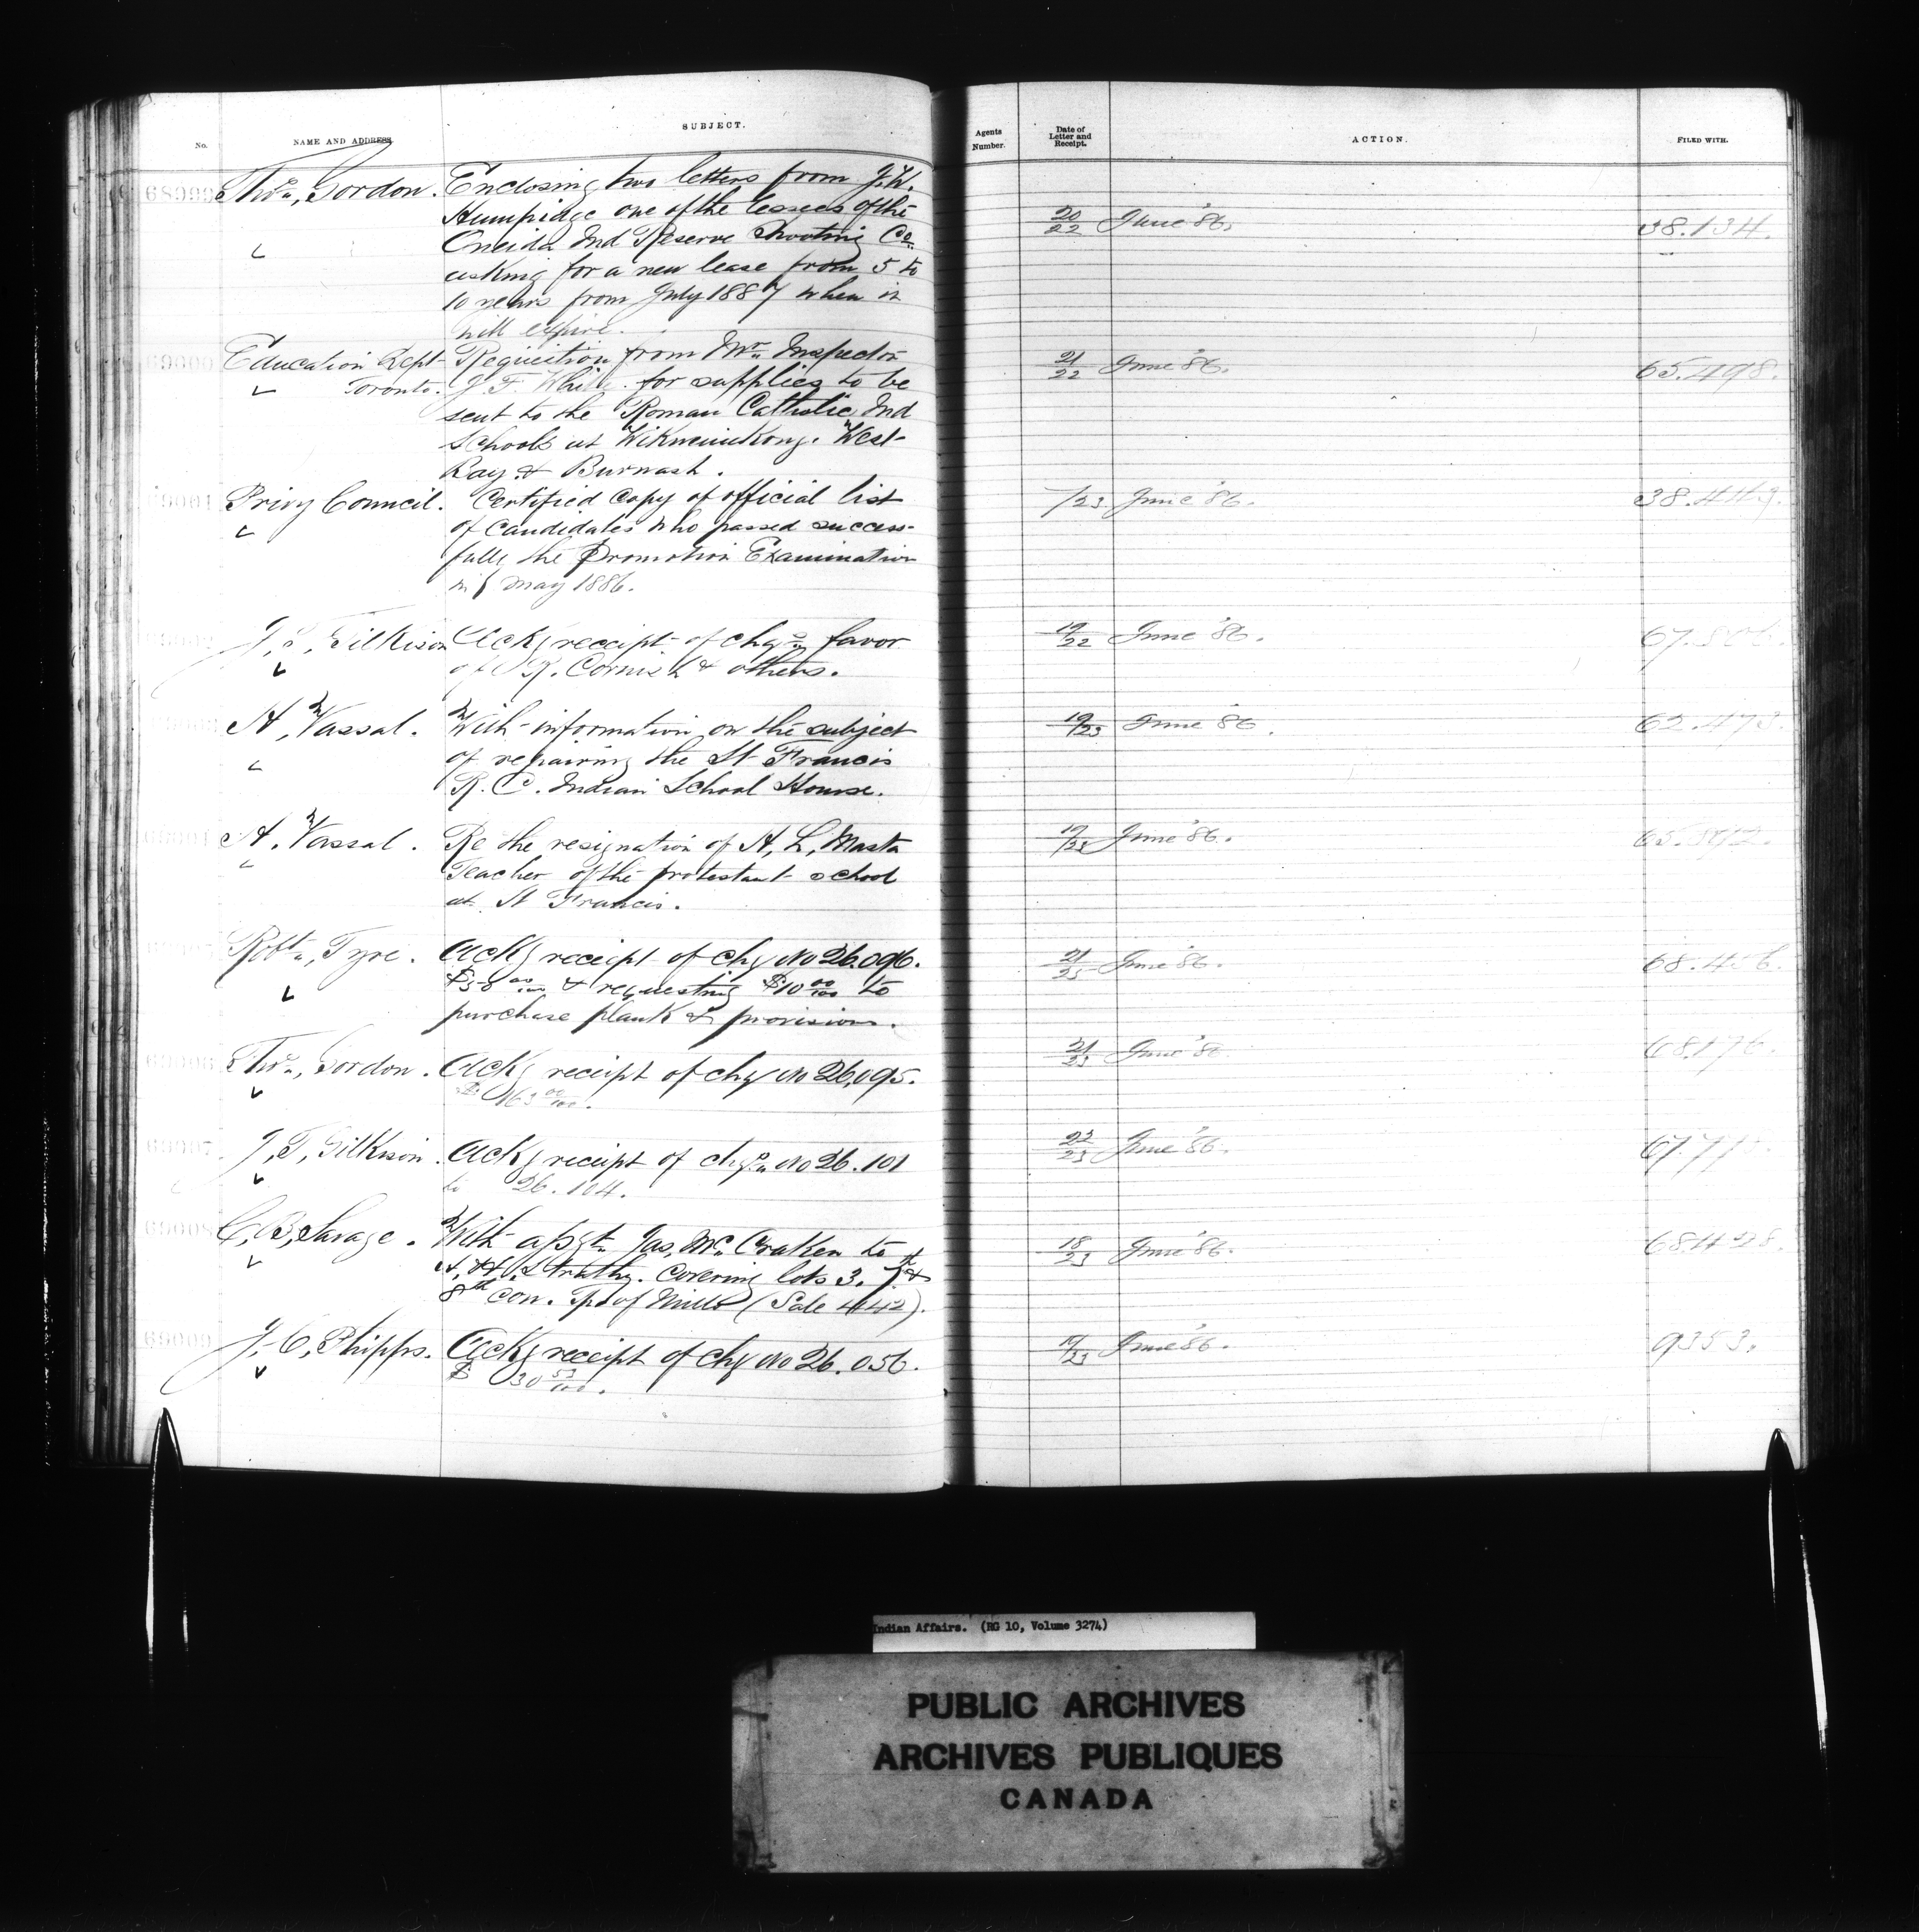 No.
NAME AND ADDRESS
SUBJECT.
Agents Number.
Date of Letter and Receipt.
ACTION.
FILED WITH.
68999
Thos., Gordon.
Enclosing two letters from J.W.
Humpidge one of the lessees of the
Oneida Ind Reserve Shooting Co.
asking for a new lease from 5 to
10 years from July 1887 when it
will expire.
20/22 June '86.
38.134.
69000
Education Dept
Toronto.
Requisition from Mr. Inspector
J. F. White for supplies to be
sent to the Roman Catholic Ind
Schools at Wikwemikong. West
Bay & Burwash.
21/22 June '86.
65.498.
69001
Privy Council.
Certified Copy of official list
of Candidates who passed success-
fully the Promotion Examination
in May 1886.
/23 June '86.
38.449.
J. T, Gilkison
Ackg receipt of chqs favor
of R. Cornish & others.
19/22 June '86.
A, Vassal.
With information on the subject
of repairing the St Francis
R. C. Indian School House.
19/23 June '86.
62.473.
A, Vassal.
Re the resignation of H, L, Masta
Teacher of the protestant school
at St Francis.
19/23 June '86.
Robt., Tyre.
Ackg receipt of chq No 26.096.
$50 00/100 & requesting $10 00/100 to
purchase plank & provisions.
21/23 June '86.
68.456.
Thos., Gordon.
Ackg receipt of chq No 26,095.
21/23 June '86
68.176.
69007
J, T, Gilkison.
Ackg receipt of chqs. No 26.101
to 26.104.
22/23 June '86.
69008
C, B, Savage.
With assgt. Jas, Mc. Craken to
A, H, Strathy. Covering lots 3. 7th &
8th Con. Tp of Mills (Sale 4442).
18/23 June '86.
69009
J, C, Phipps.
Ackg receipt of chq No 26.056.
$ 30 53/100.
19/23 June '86.
9353.
Indian Affairs. (RG 10, Volume 3274)
PUBLIC ARCHIVES
ARCHIVES PUBLIQUES
CANADA